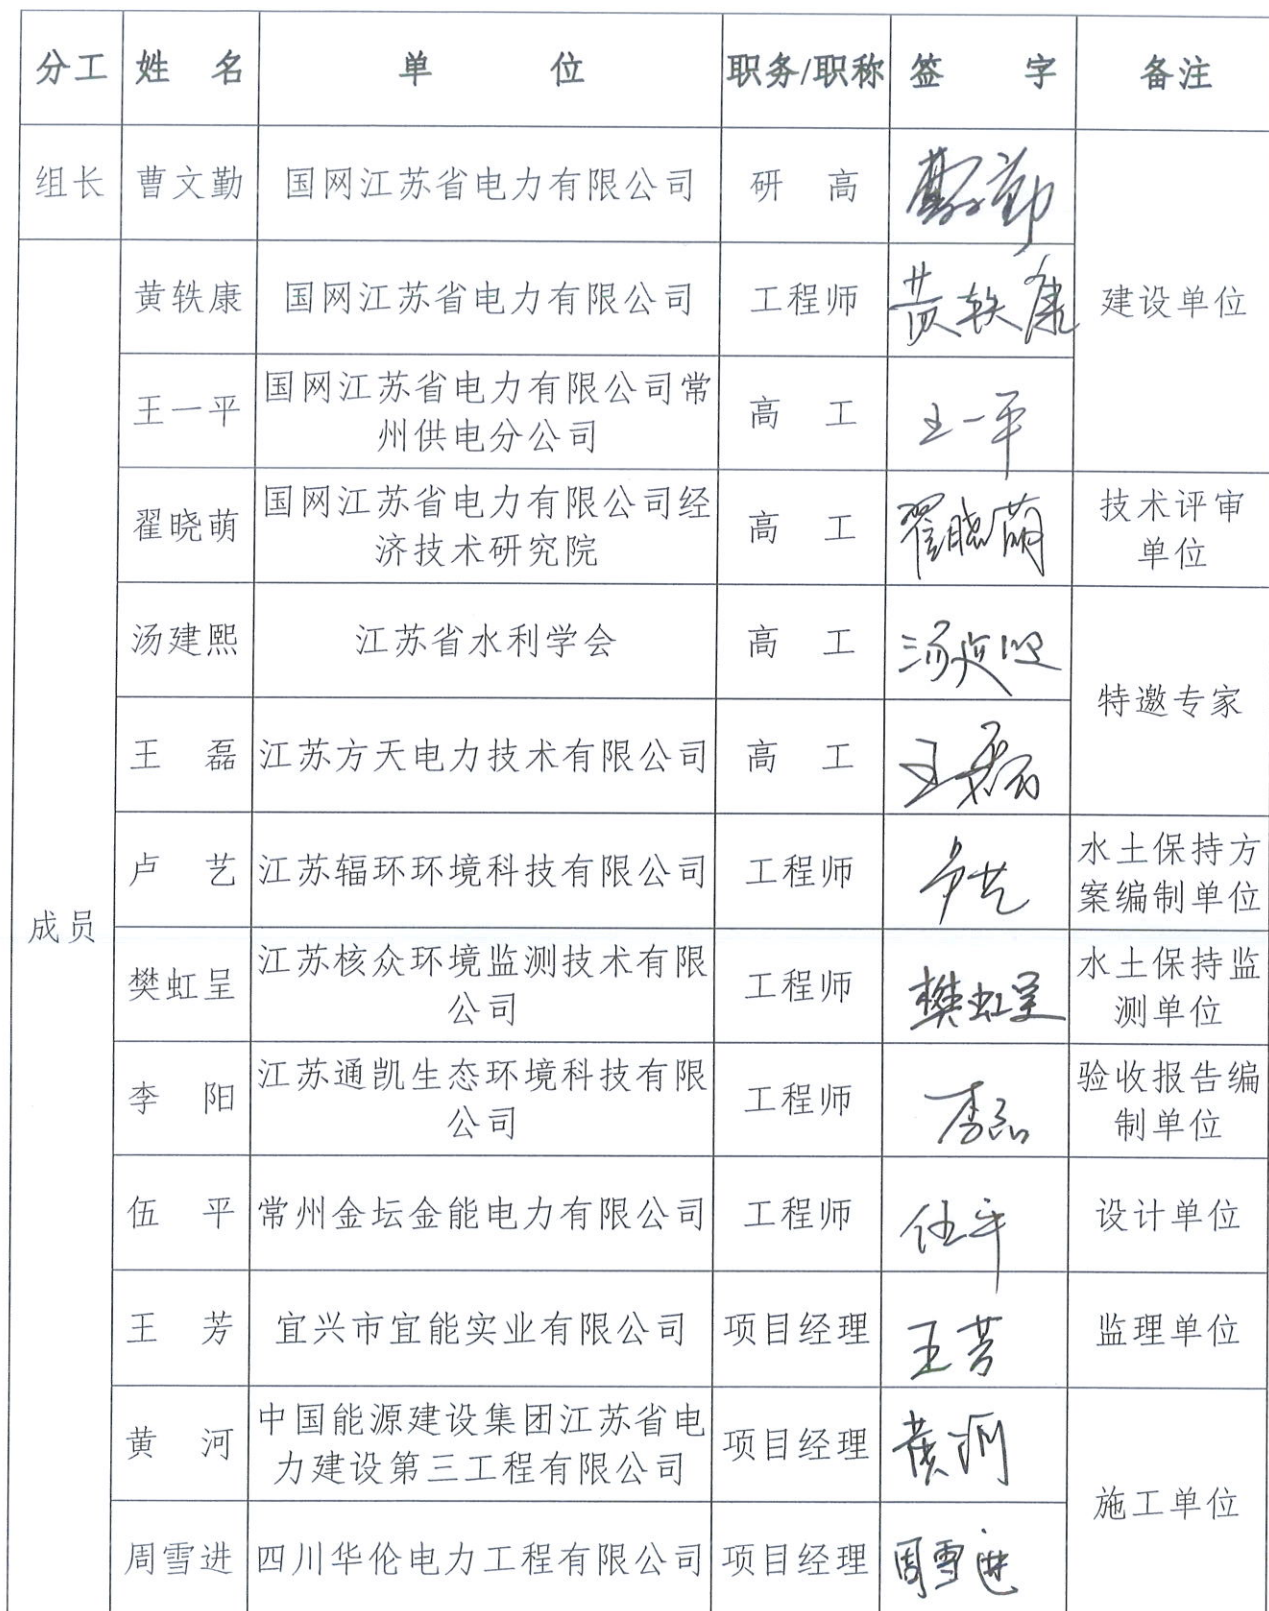 分工 姓 名 单 位 职务/职称 签 字 备注
组长 曹文勤 国网江苏省电力有限公司 研 高 曹文勤
黄轶康 国网江苏省电力有限公司 工程师 黄轶康 建设单位
王一平 国网江苏省电力有限公司常
州供电分公司 高 工 王一平
翟晓萌 国网江苏省电力有限公司经
济技术研究院 高 工 翟晓萌 技术评审
单位
汤建熙 江苏省水利学会 高 工 汤建熙
特邀专家
王 磊 江苏方天电力技术有限公司 高 工 王磊
成员
卢 艺 江苏辐环环境科技有限公司 工程师 卢艺 水土保持方
案编制单位
樊虹呈 江苏核众环境监测技术有限
公司 工程师 樊虹呈 水土保持监
测单位
李 阳 江苏通凯生态环境科技有限
公司 工程师 验收报告编
制单位
伍 平 常州金坛金能电力有限公司 工程师 伍平 设计单位
王 芳 宜兴市宜能实业有限公司 项目经理 王芳 监理单位
黄 河 中国能源建设集团江苏省电
力建设第三工程有限公司 项目经理 黄河
施工单位
周雪进 四川华伦电力工程有限公司 项目经理 周雪进